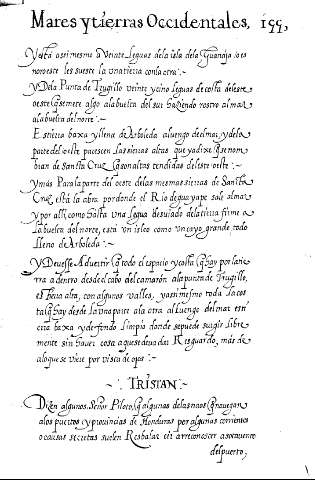 Mares y tierras Occidentales, 155,
Y esta assi mesmo a Veinte leguas dela isla dela Guanaja, oes
noroeste les sueste la una tierra con la otra:~
Y Dela Punta de Truxillo veinte y cinco leguas de costa deleste
oeste q̃ se mete algo ala buelta del sur haziendo rostro al mar
ala buelta del norte:~
E stierra baxa y llena de Arboleda aluengo del mar, y dela
parte del oeste parescen las sierras altas que ya dixe q̃ se nom
bran de Santta Cruz, q̃ son altas tendidas del este oeste:~
Y mas Para la parte del oeste de las mesmas sierras de Santta
Cruz está la abra por donde el Rio de guayape sale al mar
y por alli, como hasta una legua desuiado de la tierra firme a
la buelta del norte, esta un isleo como un cayo grande, todo
lleno de Arboleda:~
Y Deuesse Aduertir q̃ todo el espacio y costa q̃ hay por la tie
rra adentro desde el cabo del camarón ala punta de Truxillo,
es tierra alta, con algunos valles, y assi mesmo toda la cos
ta q̃ hay desde la una parte ala otra al luengo del mar es ti
erra baxa y de fondo limpio donde se puede surgir libre
mente sin hauer cosa aque se deua dar Resguardo, mas de
alo que se viere por vista de ojos:~
~:· TRISTAN·:~
Dizen algunos, Señor Piloto, q̃ algunas delas naos q̃ nauegan
alos puertos y prouincias de Honduras por algunas corrientes
o causas secretas suelen Resbalar en arreconoscer a sotauento
del puerto,